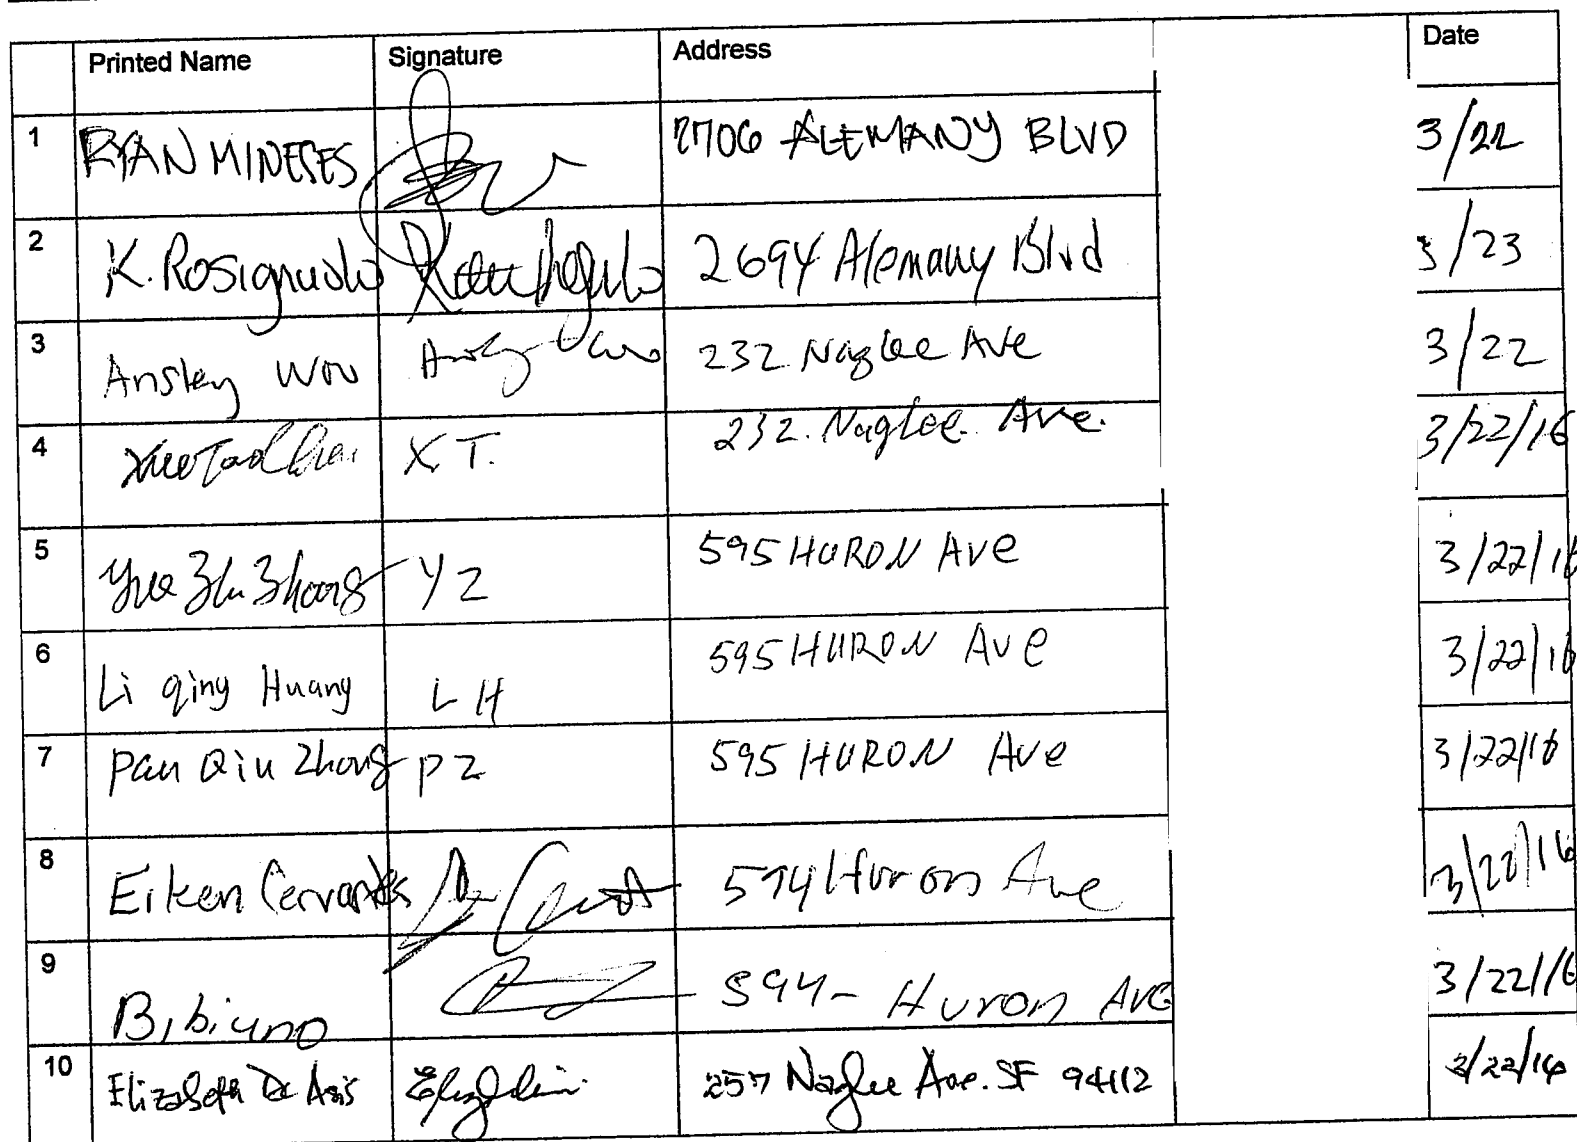 Printed Name Signature Address Date
1 RYAN MINESES 2706 ALEMANY BLVD 3/22
2 K. Rosignuolo 2694 Alemany Blvd 3/23
3 Ansley Wou 232 Naglee Ave 3/22
4 XT. 232. Naglee Ave. 3/22/16
5 Yue Zhu Zhong YZ 595 HURON Ave 3/22/16
6 Li qing Huang LH 595 HURON Ave 3/22/16
7 Pan Qiu Zhong PZ 595 HURON Ave 3/22/16
8 Eileen Cervantes Huron Ave 3/22/16
9 Bibiano 594- Huron Ave 3/22/16
10 Elizabeth De Asis 257 Naglee Ave. SF 94112 3/22/16